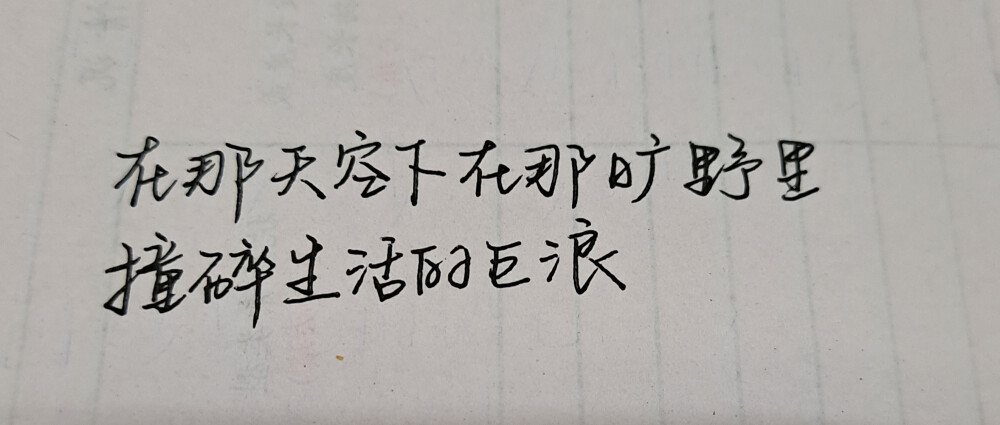 在那天空下在那旷野里
撞碎生活的巨浪